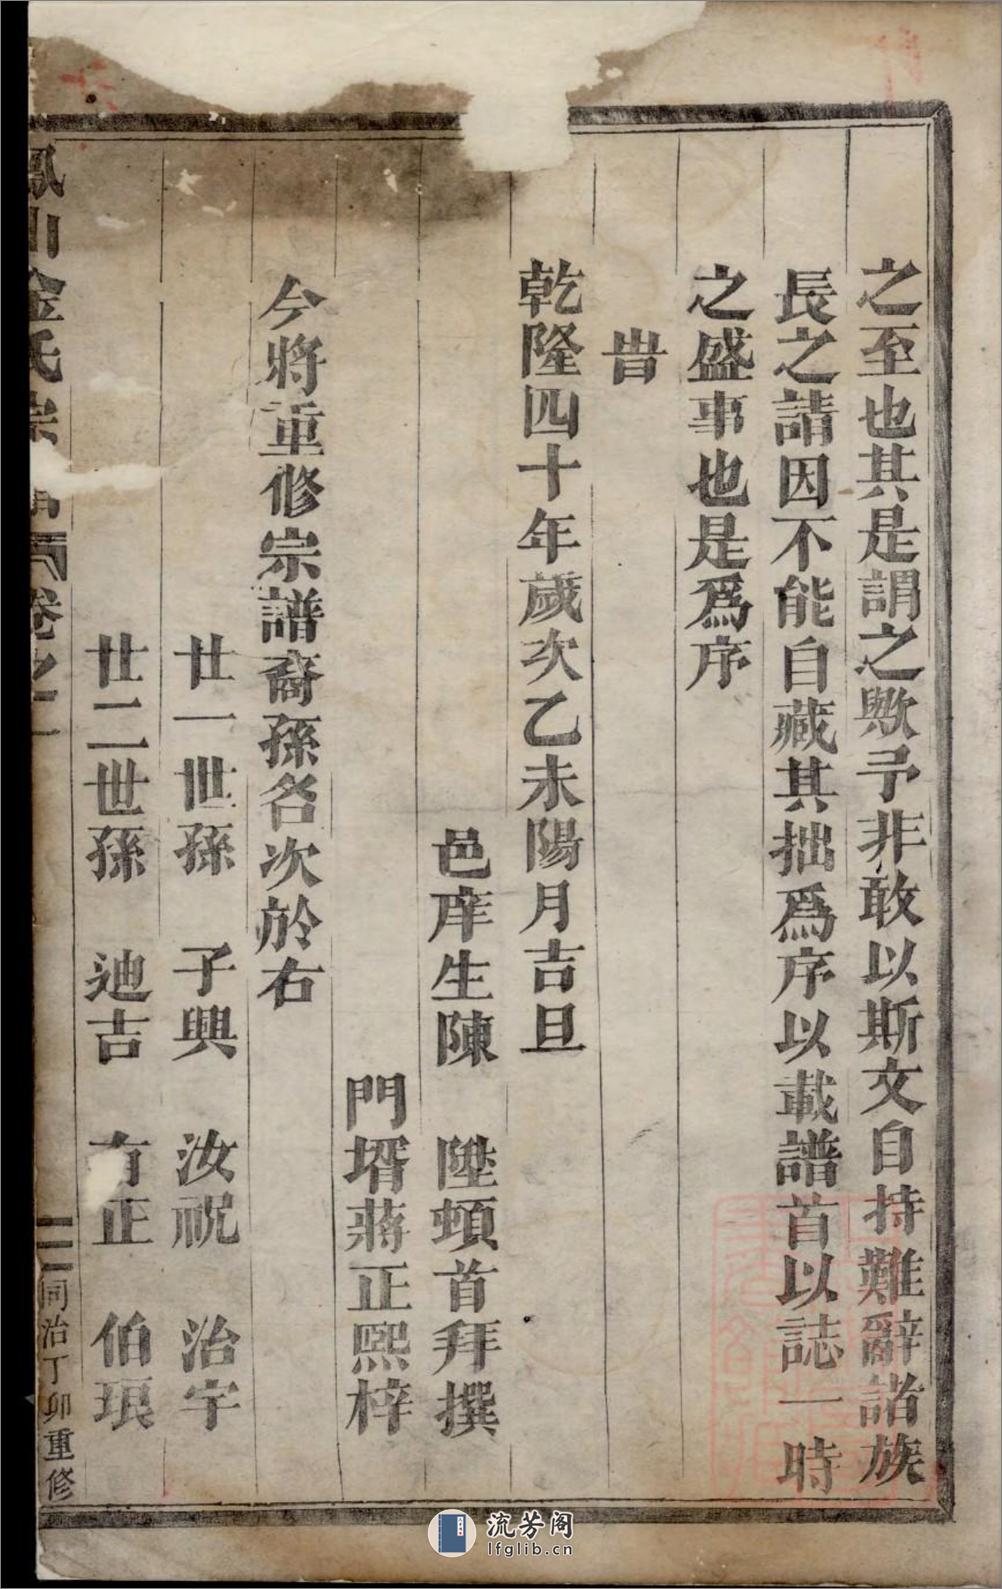 之至也其是謂之歟予非敢以斯文自持難辭諸族
長之請因不能自藏其拙爲序以載譜首以誌一時
之盛事也是爲序
旹
乾隆四十年歲次乙未陽月吉旦
邑庠生陳　陞頓首拜撰
門壻蔣正熙梓
今將重修宗譜裔孫名次於右
廿一世孫　子興　汝祝　治宇
廿二世孫　迪吉　有正　伯琅
鳳山金氏宗譜　卷之一　二　同治丁卯重修
流芳阁
lfglib.cn